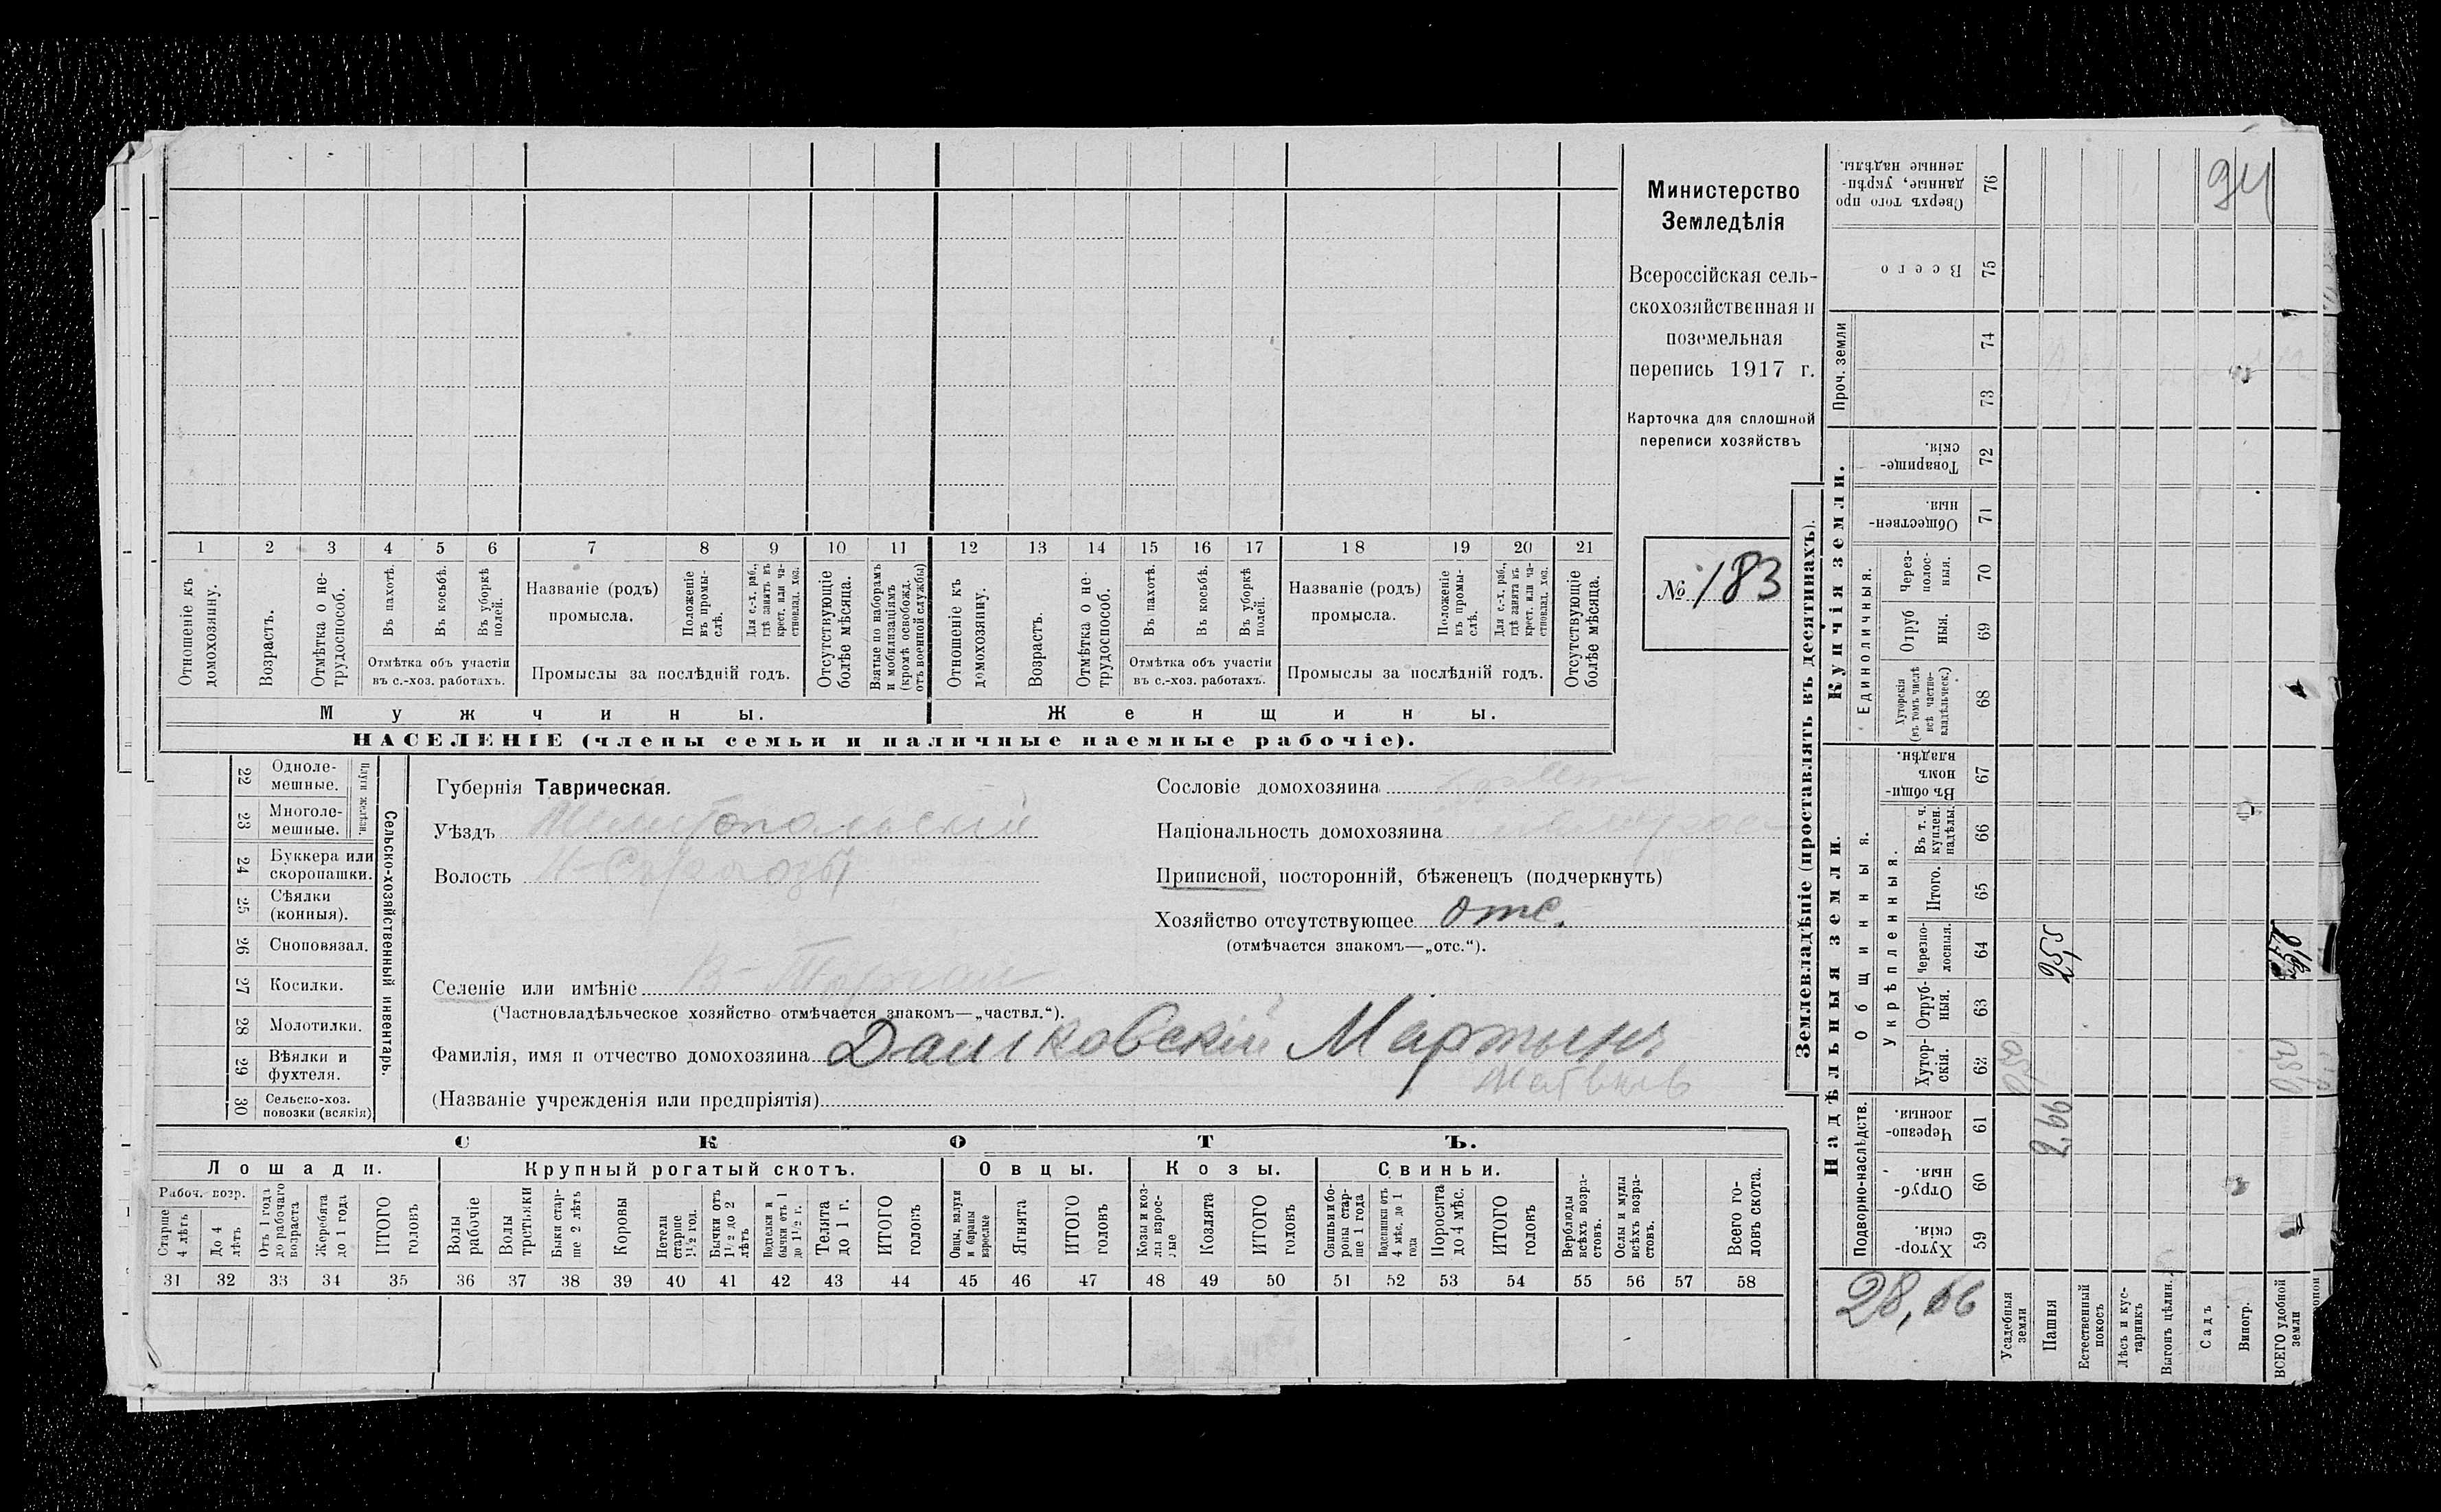 94
Министерство
Земледѣлія
Всероссійская сель-
скохозяйственная и
поземельная
перепись 1917 г.
Карточка для сплошной
переписи хозяйствъ
№ 183
1 2 3 4 5 6 7 8 9 10 11 12 13 14 15 16 17 18 19 20 21
Отношеніе къ домохозяину.
Возрастъ.
Отмѣтка о не-
трудоспособ.
Въ пахотѣ.
Въ косьбѣ.
Въ уборкѣ
полей.
Отмѣтка объ участіи
въ с.-хоз. работахъ.
Названіе (родъ)
промысла.
Положеніе
въ промы-
слѣ.
Для с.-х. раб.,
гдѣ занятъ въ
крест. или ча-
стновлад. хоз.
Промыслы за послѣдній годъ.
Отсутствующіе
болѣе мѣсяца.
Взятые по наборамъ
и мобилизаціямъ
(кромѣ освобожд.
отъ военной службы)
Отношеніе къ
домохозяину.
Возрастъ.
Отмѣтка о не-
трудоспособ.
Въ пахотѣ.
Въ косьбѣ.
Въ уборкѣ
полей.
Отмѣтка объ участіи
въ с.-хоз. работахъ.
Названіе (родъ)
промысла.
Положеніе
въ промы-
слѣ.
Для с.-х. раб.,
гдѣ занята въ
крест. или ча-
стновлад. хоз.
Промыслы за послѣдній годъ.
Отсутствующіе
болѣе мѣсяца.
Мужчины.
Женщины.
НАСЕЛЕНІЕ (члены семьи и наличные наемные рабочіе).
22 Одноле-
мешные.
23 Многоле-
мешные.
Плуги желѣзн.
24 Буккера или
скоропашки.
25 Сѣялки
(конныя).
26 Сноповязал.
27 Косилки.
28 Молотилки.
29 Вѣялки и
фухтеля.
30 Сельско-хоз.
повозки (всякія)
Сельско-хозяйственный инвентарь.
Губернія Таврическая.
Уѣздъ Мелитопольскій
Волость Н-Сѣрогозы
Селеніе или имѣніе В-Торгаи
(Частновладѣльческое хозяйство отмѣчается знакомъ—„частвл.“).
Фамилія, имя и отчество домохозяина Дашковскій Мартынъ
Матвѣев
(Названіе учрежденія или предпріятія)
Сословіе домохозяина
Національность домохозяина
Приписной, посторонній, бѣженецъ (подчеркнуть)
Хозяйство отсутствующее отс.
(отмѣчается знакомъ—„отс.“).
СКОТЪ.
Лошади. Крупный рогатый скотъ. Овцы. Козы. Свиньи.
Рабоч. возр.
Старше
4 лѣтъ
До 4
лѣтъ
Отъ 1 года
до рабочаго
возраста
Жеребята
до 1 года
ИТОГО
головъ
Волы
рабочіе
Волы
третьяки
Быки стар-
ше 2 лѣтъ
Коровы
Нетели
старше
1½ год.
Бычки отъ
1½ до 2
лѣтъ
Нетельки и
бычки отъ 1
до 1½ г.
Телята
до 1 г.
ИТОГО
головъ
Овцы, валухи
и бараны
взрослые
Ягнята
ИТОГО
головъ
Козы и коз-
лы взрос-
лые
Козлята
ИТОГО
головъ
Свиньи и бо-
ровы стар-
ше 1 года
Подсвинки отъ
4 мѣс. до 1
года
Поросята
до 4 мѣс.
ИТОГО
головъ
Верблюды
всѣхъ возра-
стовъ.
Ослы и мулы
всѣхъ возра-
стовъ.
Всего го-
ловъ скота.
31 32 33 34 35 36 37 38 39 40 41 42 43 44 45 46 47 48 49 50 51 52 53 54 55 56 57 58
Землевладѣніе (проставлять въ десятинахъ).
Надѣльныя земли.
Купчія земли.
Проч. земли
Подворно-наслѣдств.
Общинныя.
Укрѣпленныя.
Единоличныя.
Хутор-
скія. 59
Отруб-
ныя. 60
Черезпо-
лосныя. 61
Хутор-
скія. 62
Отруб-
ныя. 63
Черезпо-
лосныя. 64
Итого. 65
Въ т. ч.
куплен.
надѣлы. 66
Въ общи-
номъ
владѣн. 67
Хуторскія
(въ томъ числѣ
всѣ частно-
владѣльческ.) 68
Отруб
ныя. 69
Через-
полос-
ныя. 70
Обществен-
ныя. 71
Товарище-
скія. 72
73
74
Всего 75
Сверхъ того про
данные, укрѣп-
ленные надѣлы. 76
28,66
Усадебныя
земли
Пашня
Естественный
покосъ
Лѣсъ и кус-
тарникъ
Выгонъ цѣлин.
Садъ
Виногр.
ВСЕГО удобной
земли